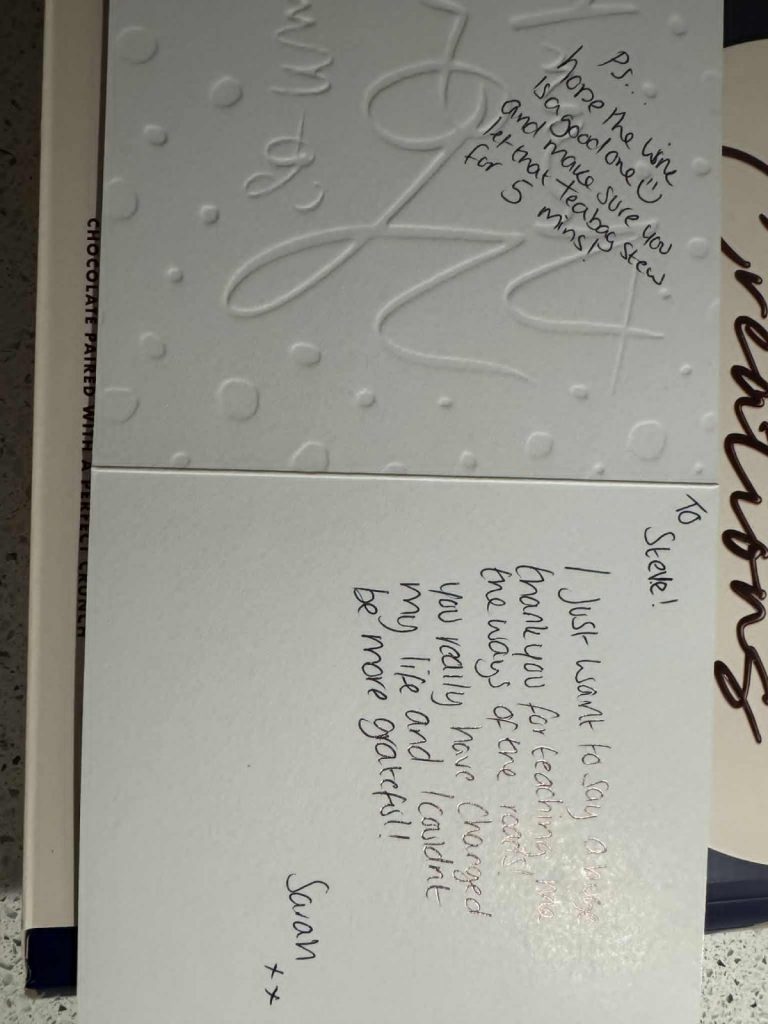 To
Steve!
I just want to say a huge
thank you for teaching me
the ways of the roads!
you really have changed
my life and I couldn't
be more grateful!
Sarah
x x
Ps...
hope the wine
is a good one
and make sure you
let that teabag stew
for 5 mins!
Creations
CHOCOLATE PAIRED WITH A PERFECT CRUNCH